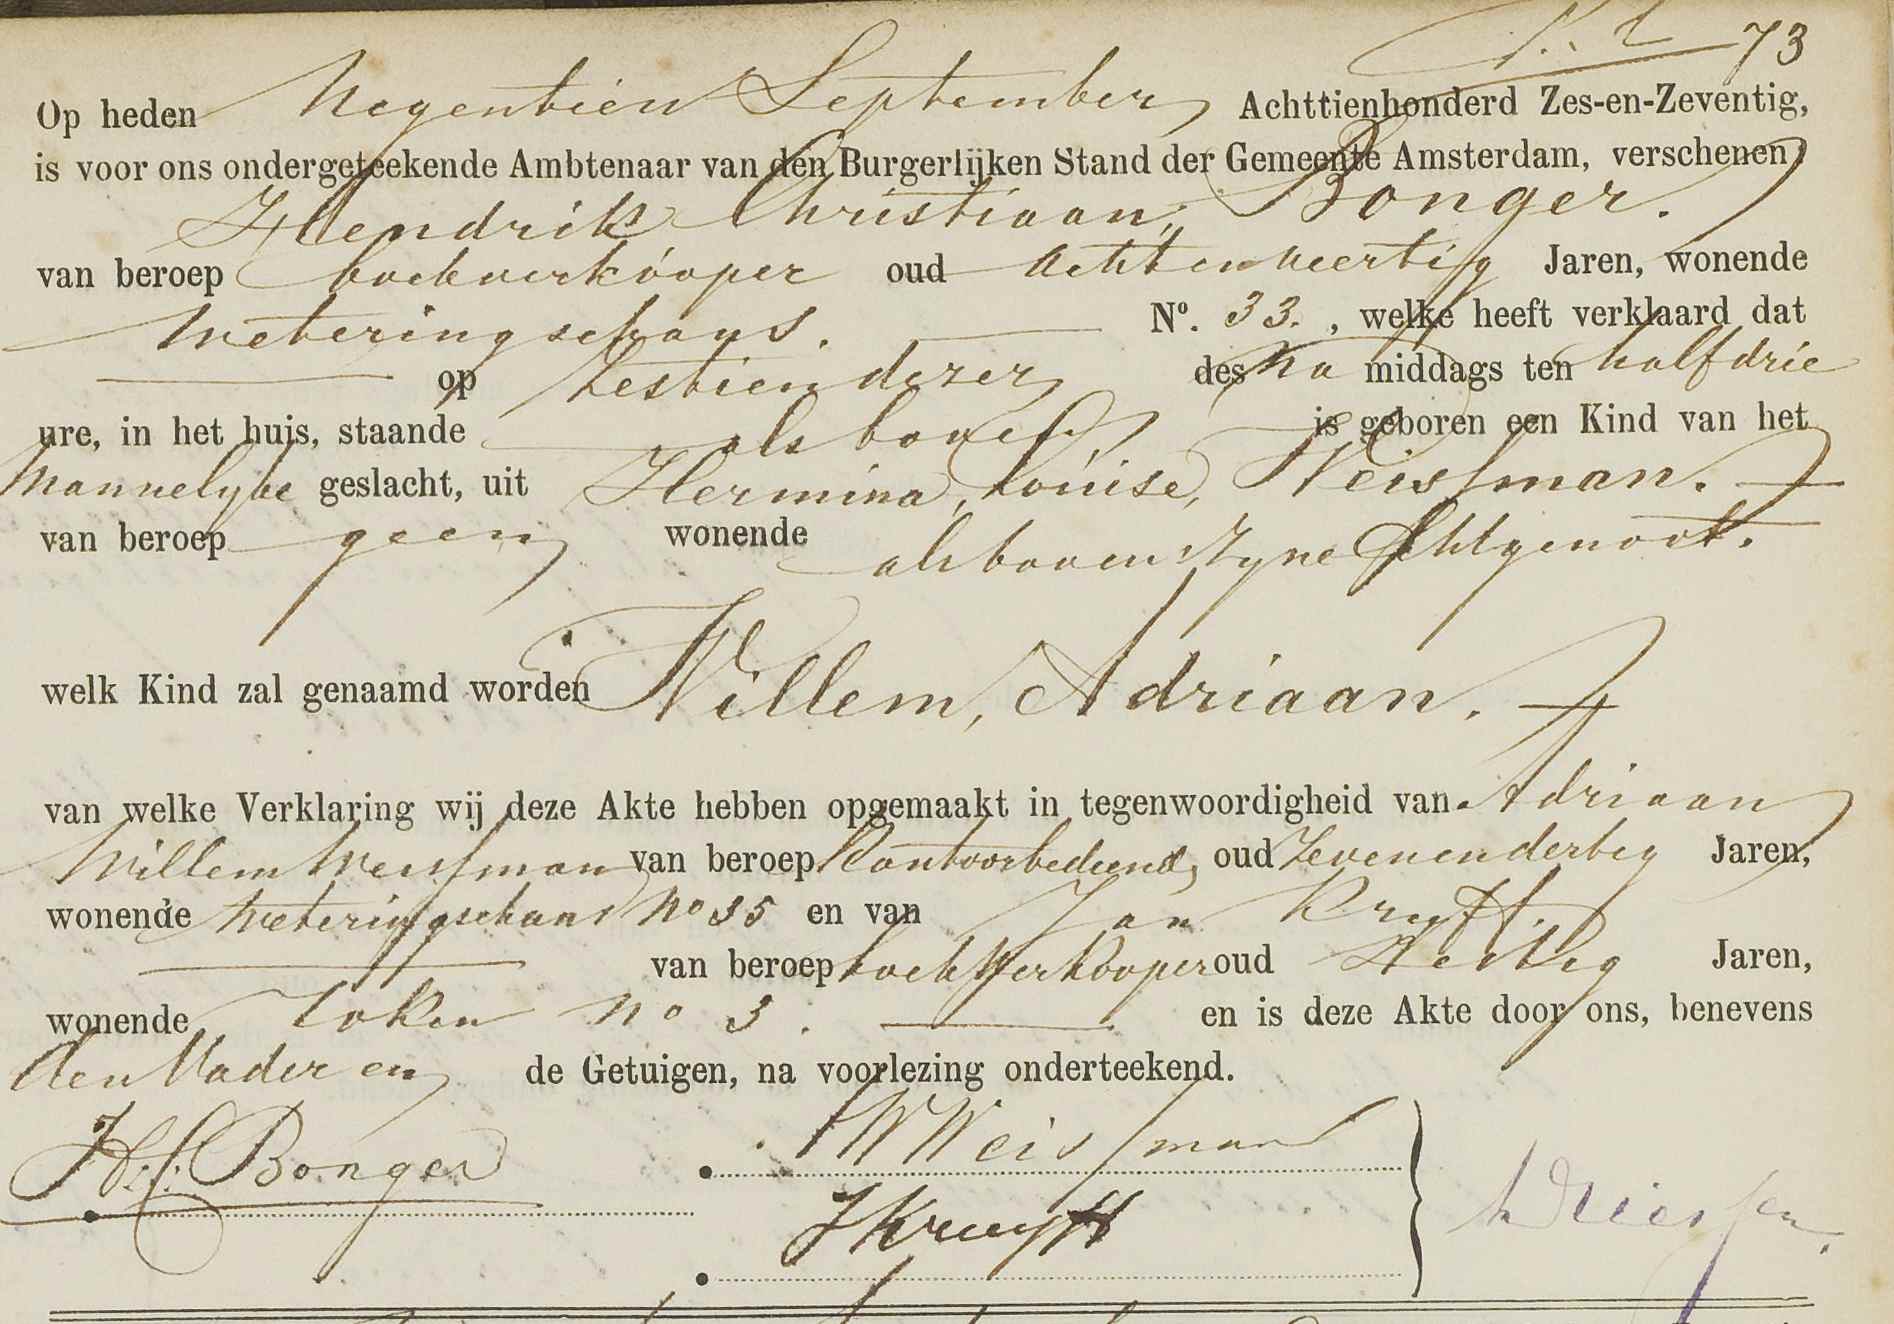 73
Op heden Negentien September Achttienhonderd Zes-en-Zeventig,
is voor ons ondergeteekende Ambtenaar van den Burgerlijken Stand der Gemeente Amsterdam, verschenen
Hendrik Christiaan, Bonger.
van beroep boekverkooper oud Achtenveertig Jaren, wonende
Weteringschans. No. 33. , welke heeft verklaard dat
op Zestien dezer des Na middags ten halfdrie
ure, in het huis, staande als boven is geboren een Kind van het
Mannelyke geslacht, uit Hermina, Louise, Weissman.
van beroep geen wonende als boven Zyne Echtgenoot.
welk Kind zal genaamd worden Willem, Adriaan.
van welke Verklaring wij deze Akte hebben opgemaakt in tegenwoordigheid van Adriaan
Willem Weissman van beroep Kantoorbediende, oud Zevenendertig Jaren,
wonende Weteringschans No 35 en van Jan Kruyft.
van beroep boekverkooper oud Zestig Jaren,
wonende No 3. en is deze Akte door ons, benevens
den Vader en de Getuigen, na voorlezing onderteekend.
H.C. Bonger
AW Weissman
J Kruyft